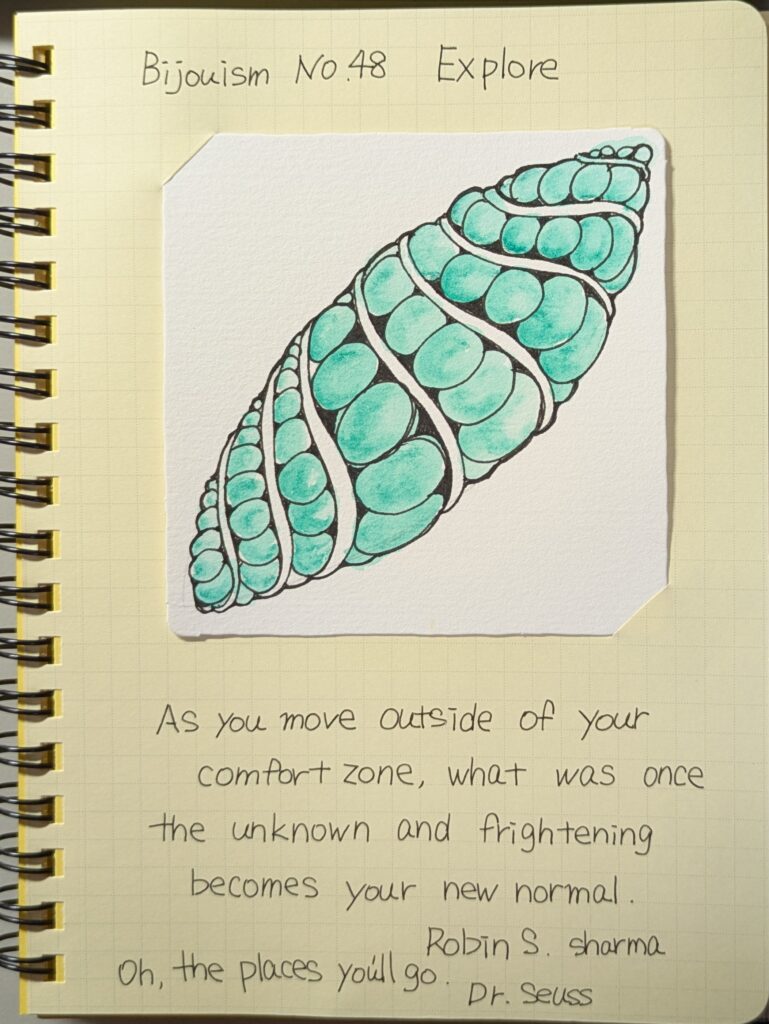 Bijouism No.48 Explore
As you move outside of your
comfort zone, what was once
the unknown and frightening
becomes your new normal.
Robin S. sharma
Oh, the places you'll go.
Dr. Seuss